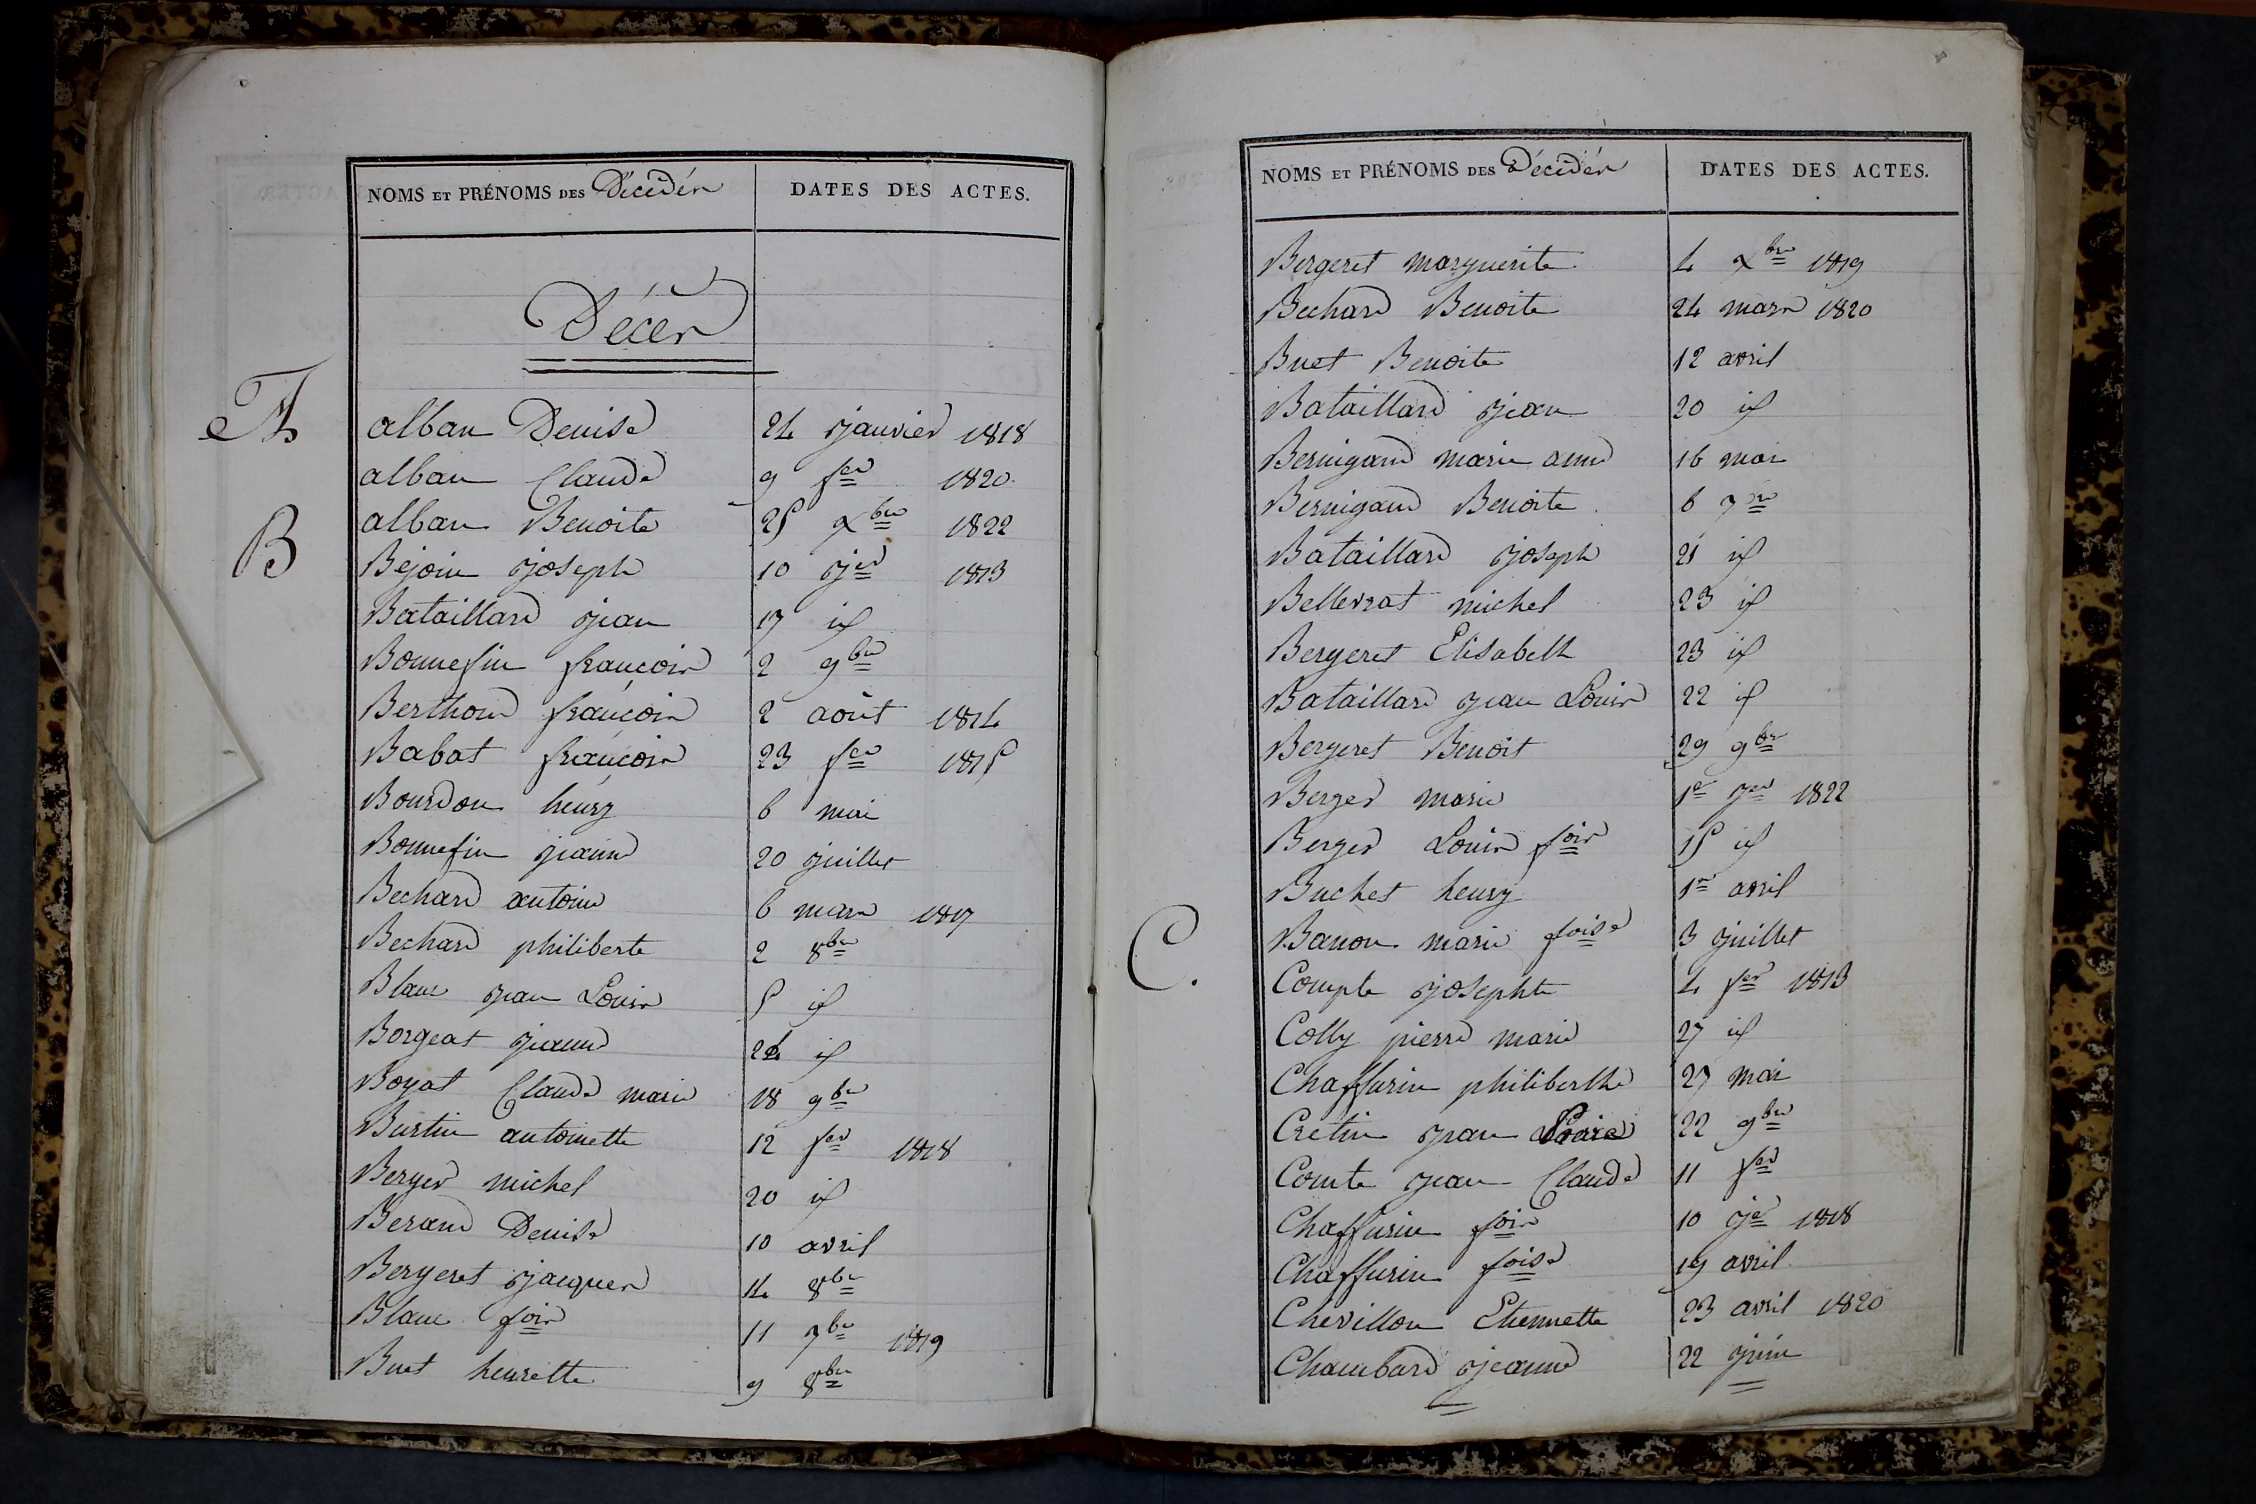 NOMS ET PRÉNOMS DES Décédés DATES DES ACTES.
Décès
A
alban Denise 24 janvier 1818
alban Claude 9 fer 1820
alban Benoite 25 xbre 1822
B
Bejoin joseph 10 jer 1813
Bataillard jean 17 id
Bonnefin françois 2 9bre
Berthoud françois 2 août 1814
Babat françois 23 fer 1815
Bourdon henry 6 mai
Bonnefin jeanne 20 juillet
Bechard antoine 6 mars 1817
Bechard philiberte 2 8bre
Blanc jean Louis 5 id
Borgeat jeanne 24 id
Boyat Claude marie 18 9bre
Burtin antoinette 12 fer 1818
Berger michel 20 id
Beraud Denise 10 avril
Bergeret jacques 14 8bre
Blanc fois 11 7bre 1819
Buet henrette 9 8bre
NOMS ET PRÉNOMS DES Décédés DATES DES ACTES.
Bergeret marguerite 4 xbre 1819
Bechard Benoite 24 mars 1820
Buet Benoite 12 avril
Bataillard jean 20 id
Bernigaud marie anne 16 mai
Bernigaud Benoite 6 7re
Bataillard joseph 21 id
Bellevrat michel 23 id
Bergeret Elisabeth 23 id
Bataillard jean Louis 22 id
Bergeret Benoit 29 9bre
Berger marie 1er jer 1822
Berger Louis fois 15 id
Buchet henry 1er avril
Banon marie foise 3 juillet
C.
Compte josephte 4 fer 1813
Colly pierre marie 27 id
Chaffurin philiberthe 27 mai
Cretin jean 22 9bre
Comte jean Claude 11 fer
Chaffurin fois 10 jer 1818
Chaffurin foise 19 avril
Chevillon Etiennette 23 avril 1820
Chambard jeanne 22 juin